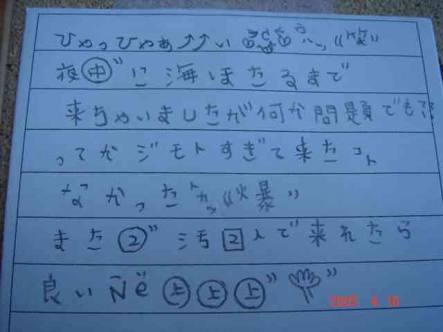 ひゃっひゃぁ↑↑い
夜㊥"に海ほたるまで
来ちゃいましたが何か問題でも
ってかジモトすぎて来たコト
なかったカッ《爆》
また②"汚2人で来れたら
良いNë㊤㊤㊤"